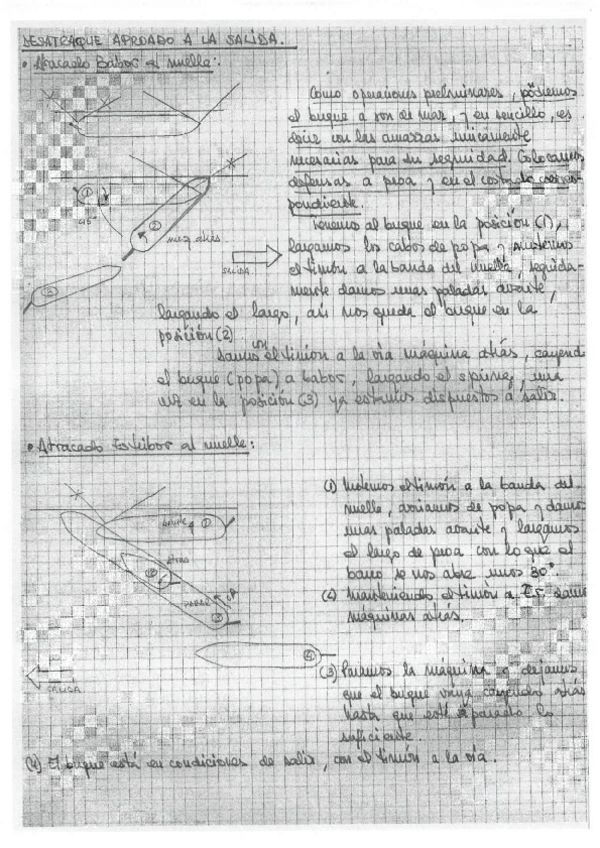 DESATRAQUE APROADO A LA SALIDA.
• Atracado Babor al muelle:
Como operaciones preliminares, pondremos
el buque a son de mar, y en sencillo, es
decir con las amarras únicamente
necesarias para su seguridad. Colocamos
defensas a proa y en el costado corres-
pondiente.
Tenemos al buque en la posición (1),
largamos los cabos de popa y metemos
el timón a la banda del muelle, seguida-
mente damos unas paladas avante,
largando el largo, así nos queda el buque en la
posición (2)
Damos con el timón a la vía máquina atrás, cayendo
el buque (popa) a babor, largando el spring, una
vez en la posición (3) ya estamos dispuestos a salir.
1
45°
2
maq. atrás
3
SALIDA
• Atracado Estribor al muelle:
(1) Metemos el timón a la banda del
muelle, arriamos de popa y damos
unas paladas avante y largamos
el largo de proa con lo que el
barco se nos abre unos 30°.
(2) Manteniendo el timón a Er. damos
máquinas atrás.
(3) Paramos la máquina y dejamos
que el buque vaya cayendo atrás
hasta que esté separado lo
suficiente.
(4) El buque está en condiciones de salir, con el timón a la vía.
avante
1
atrás
2
3
4
SALIDA